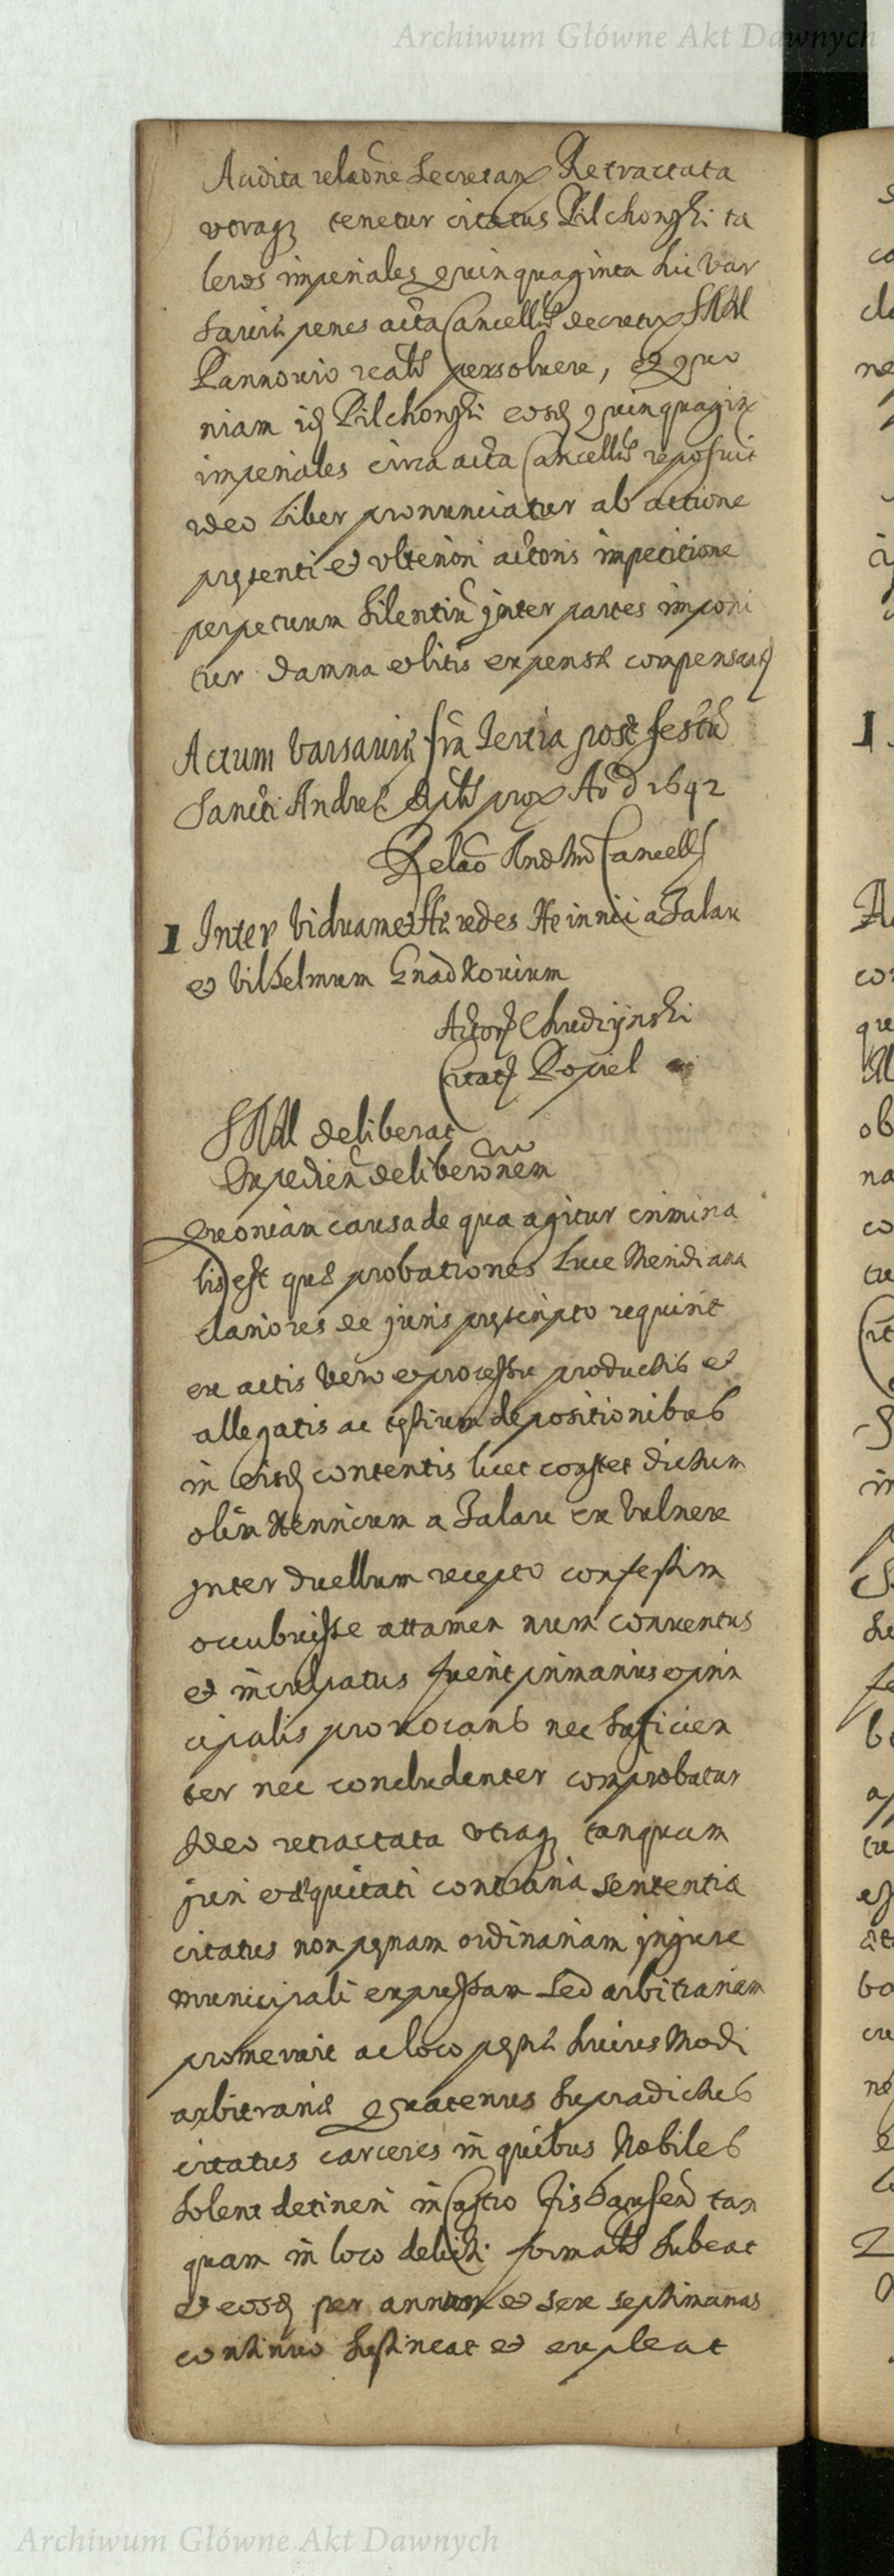 Archiwum Główne Akt Dawnych
Audita relaōne Secretarij Retractata
utraqȝ tenetur citatus Pilchowski ta
leros imperiales quinquaginta hic Var
saviæ penes acta Cancellris decretu SRM
Pannovio realr persoluere, et quo
niam idȝ Pilchowski eosdȝ quinquagin
imperiales circa acta Cancellris reposuit
ideo Liber pronunciatur ab actione
pręsenti et ulteriori actoris impetitione
perpetuum Silentiū inter partes imponi
tur damna et litis expensæ compensant
Actum Varsaviæ fria Tertia post festū
Sancti Andreæ Apli prox Ao D 1642
Relaō Cancell
1 Inter Viduam et Hæredes Heinrici a Talau
et Vilhelmum Gnadkovium
Actor Chudzijnski
Citat Popiel
SRM deliberat
Expedien deliberōnem
Quoniam causa de qua agitur crimina
lis est quæ probationes Luce Meridiana
clariores de juris pręscripto requirit
ex actis Vero et processu productis et
allegatis ac testium depositionibus
in eisdȝ contentis licet constet dictum
olim Henricum a Talau ex Vulnere
Inter duellum recepto confestim
occubuisse attamen num conventus
et inculpatus fuerit primarius et prin
cipalis provocans nec Suficien
ter nec concludenter comprobatur
Ideo retractata utraqȝ tanquam
juri et æquitati contraria sententia
citatus non pęnam ordinariam in jure
municipali expressam Sed arbitrariam
promeruit ac loco pęnæ huius Modi
arbitrariæ Quatenus Supradictus
citatus carceres in quibus Nobiles
Solent detineri in Castro Fishausen tan
quam in loco delicti formalr Subeat
et eosdȝ per annum et sex septimanas
continuo Sustineat et expleat
Archiwum Główne Akt Dawnych